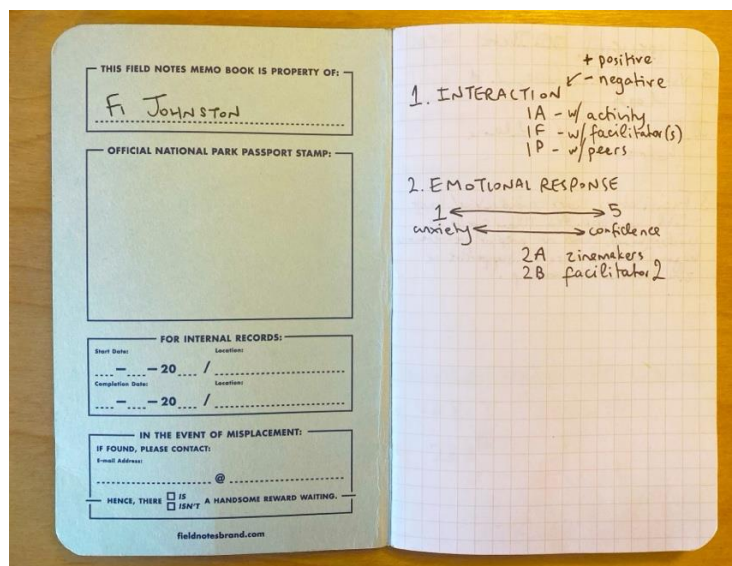 THIS FIELD NOTES MEMO BOOK IS PROPERTY OF:
Fi JOHNSTON
OFFICIAL NATIONAL PARK PASSPORT STAMP:
FOR INTERNAL RECORDS:
Start Date: Location:
— — 20 /
Completion Date: Location:
— — 20 /
IN THE EVENT OF MISPLACEMENT:
IF FOUND, PLEASE CONTACT:
E-mail Address:
@
HENCE, THERE IS ISN'T A HANDSOME REWARD WAITING.
fieldnotesbrand.com
+ positive
- negative
1. INTERACTION
1A - w/ activity
1F - w/ facilitator(s)
1P - w/ peers
2. EMOTIONAL RESPONSE
1 5
anxiety confidence
2A zinemakers
2B facilitator 2